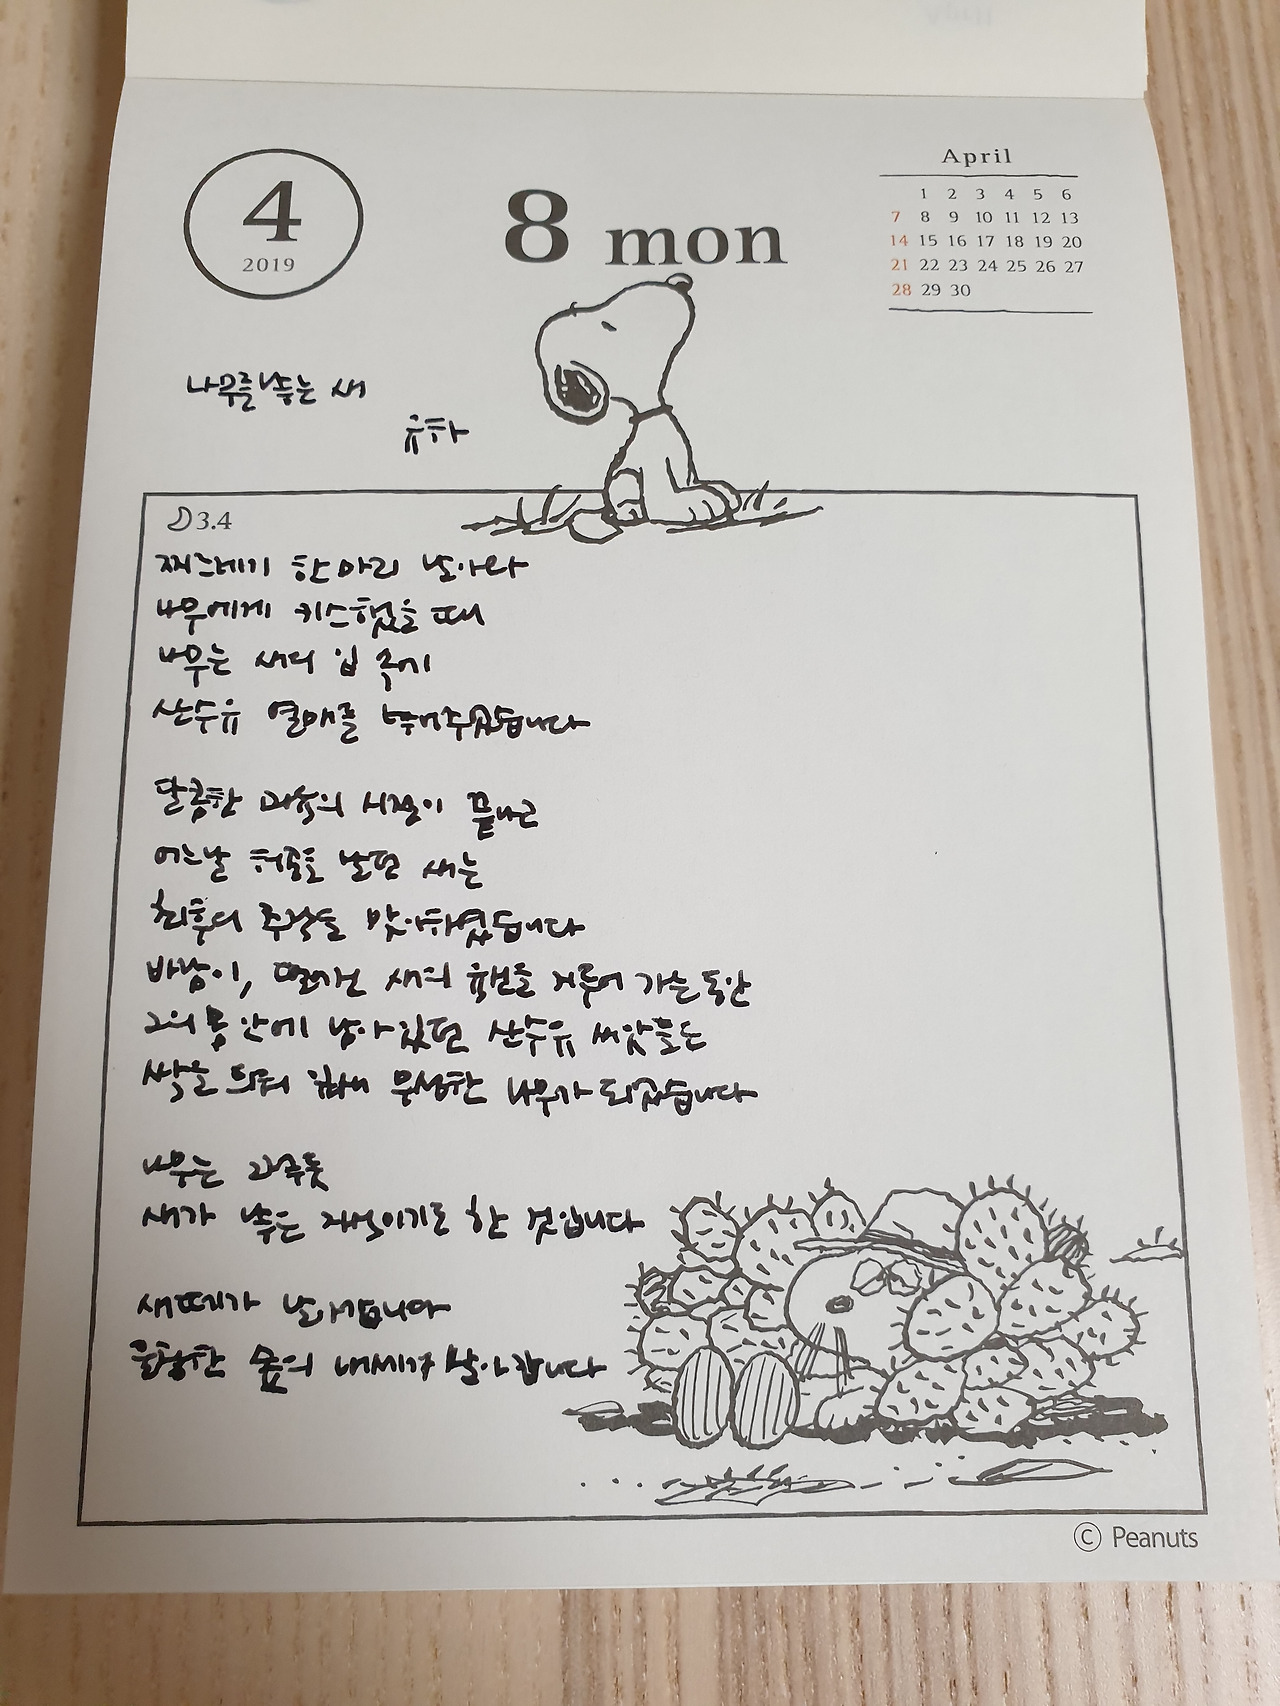 4
2019
8 mon
April
1 2 3 4 5 6
7 8 9 10 11 12 13
14 15 16 17 18 19 20
21 22 23 24 25 26 27
28 29 30
나무를 낳는 새
유하
3.4
찌르레기 한 마리 날아와
나무에게 키스했을 때
나무는 새의 입 속에
산수유 열매를 넣어주었습니다
달콤한 과육의 시절이 끝나고
어느날 허공을 날던 새는
최후의 추락을 맞이하였습니다
바람이, 떨어진 새의 육신을 거두어 가는 동안
그의 몸 안에 남아 있던 산수유 씨앗들은
싹을 틔워 잎새 무성한 나무가 되었습니다
나무는 그렇듯
새가 낳은 자식이기도 한 것입니다
새떼가 날아갑니다
울창한 숲의 내세가 날아갑니다
© Peanuts